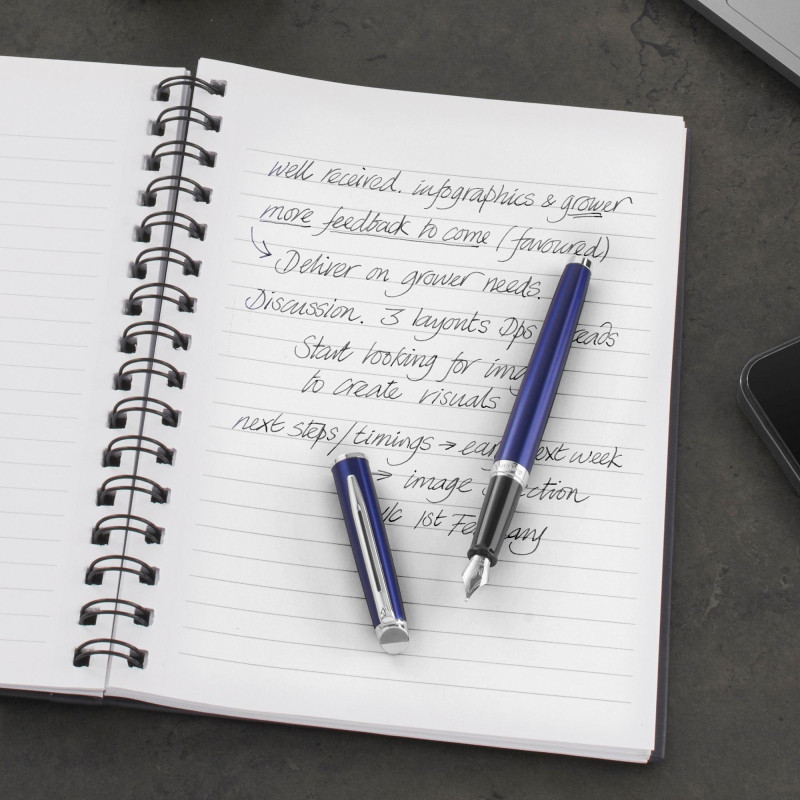 well received. infographics & grower
more feedback to come (favoured)
↳ Deliver on grower needs.
Discussion. 3 layouts Dps eads
Start looking for ima
to create visuals
next steps/timings → ear ext week
→ image ction
1st Fe ary